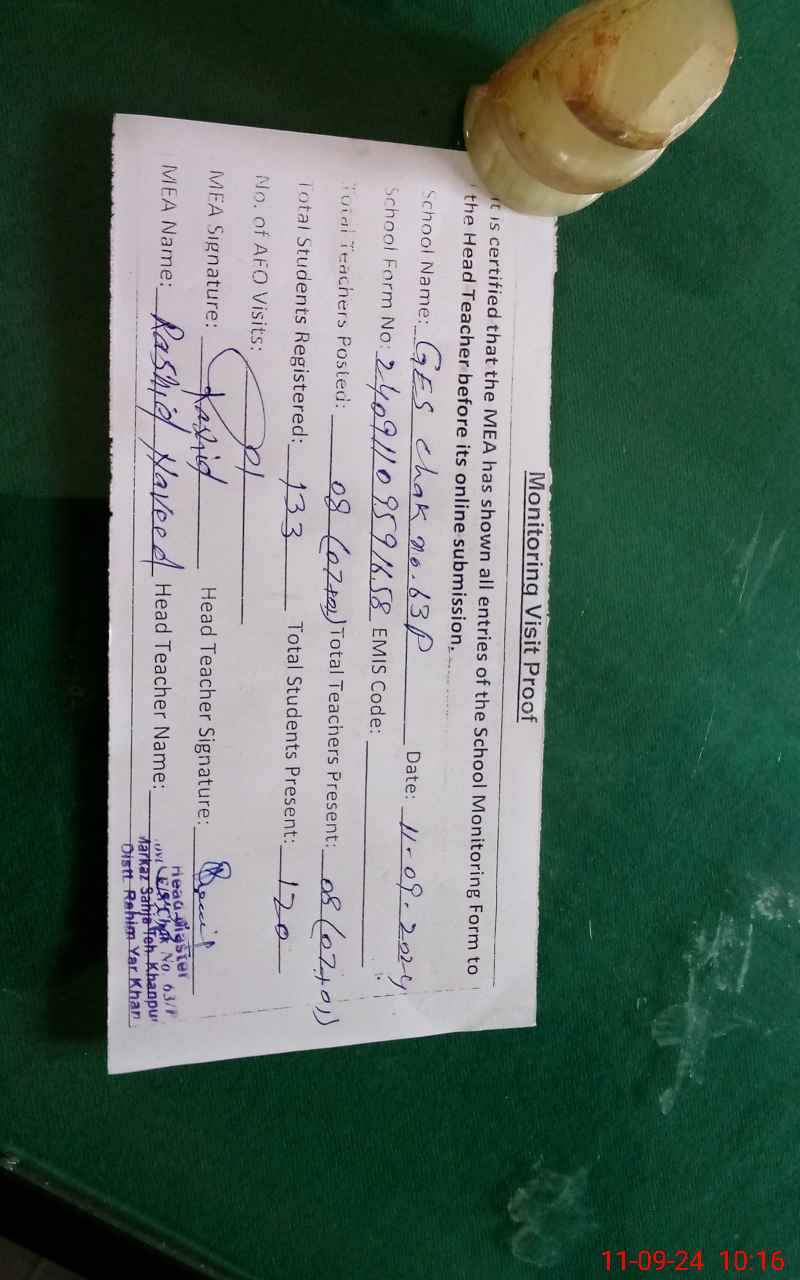 Monitoring Visit Proof
It is certified that the MEA has shown all entries of the School Monitoring Form to
the Head Teacher before its online submission.
School Name: GES Chak no. 63P Date: 11-09-2024
School Form No: EMIS Code:
Total Teachers Posted: 08 (07+01) Total Teachers Present: 08 (07+01)
Total Students Registered: 133 Total Students Present: 120
No. of AFO Visits: 01
MEA Signature: Rashid Head Teacher Signature:
MEA Name: Rashid Naveed Head Teacher Name:
Head Master
Chak No 63/P
Markaz Sahja Teh. Khanpur
Distt. Rahim Yar Khan
11-09-24 10:16